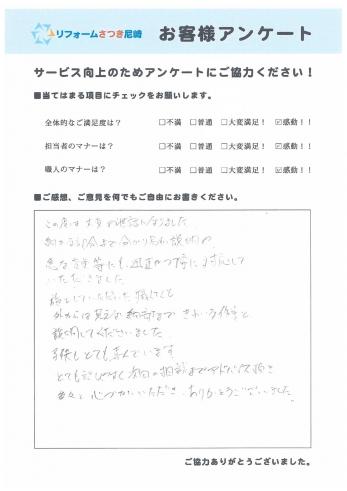 リフォームさつき尼崎
お客様アンケート
サービス向上のためアンケートにご協力ください！
■当てはまる項目にチェックをお願いします。
全体的なご満足度は？ □不満 □普通 □大変満足！ ☑感動！！
担当者のマナーは？ □不満 □普通 □大変満足！ ☑感動！！
職人のマナーは？ □不満 □普通 □大変満足！ ☑感動！！
■ご感想、ご意見を何でもご自由にお書きください。
この度は 大変 お世話になりました
分かり易い説明や
急な 等にも 迅速かつ丁寧に 対応して
いただきました
外からは見えない きれいな作業と
説明してくださいました
とても喜んでいます
とても 次回の相談まで アドバイス頂き
心づかいいただき ありがとうございました
ご協力ありがとうございました。